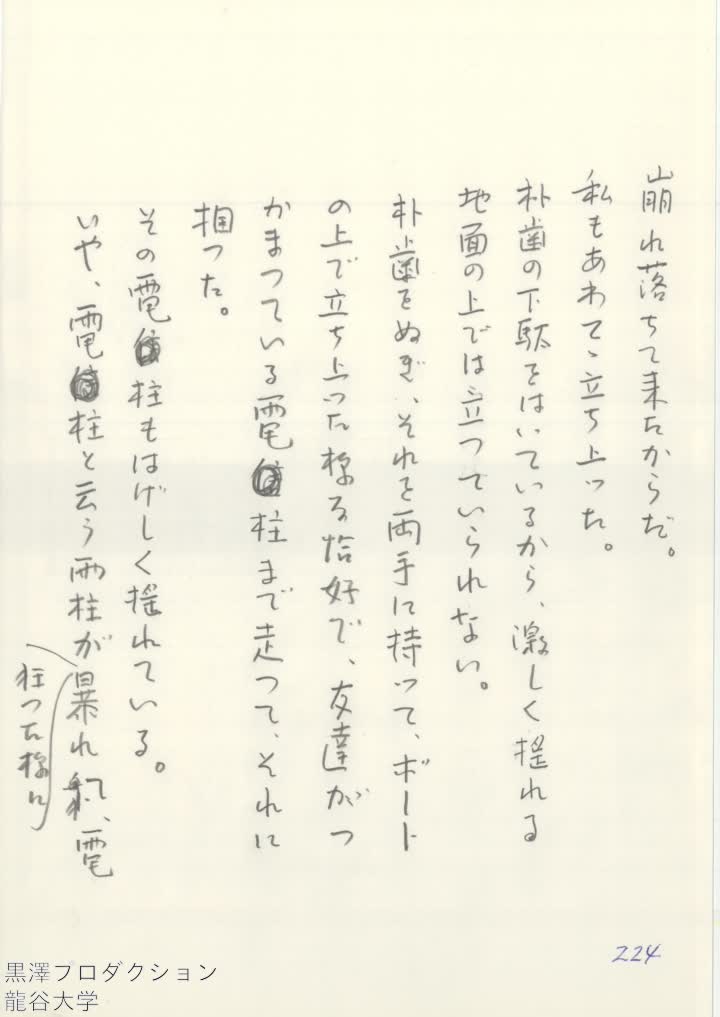 崩れ落ちて来たからだ。
私もあわてゝ立ち上った。
朴歯の下駄をはいているから、激しく揺れる
地面の上では立つていられない。
朴歯をぬぎ、それを両手に持つて、ボート
の上で立ち上った様な恰好で、友達がつ
かまつている電柱まで走つて、それに
掴つた。
その電柱もはげしく揺れている。
いや、電柱と云う電柱が暴れ、電
狂つた様に
224
黒澤プロダクション
龍谷大学